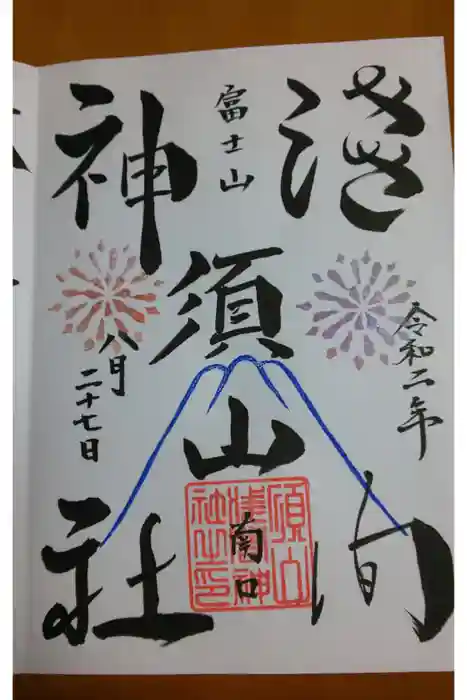 浅間
富士山
須山
南口
神社
令和二年
八月
二十七日
須山浅間神社之印